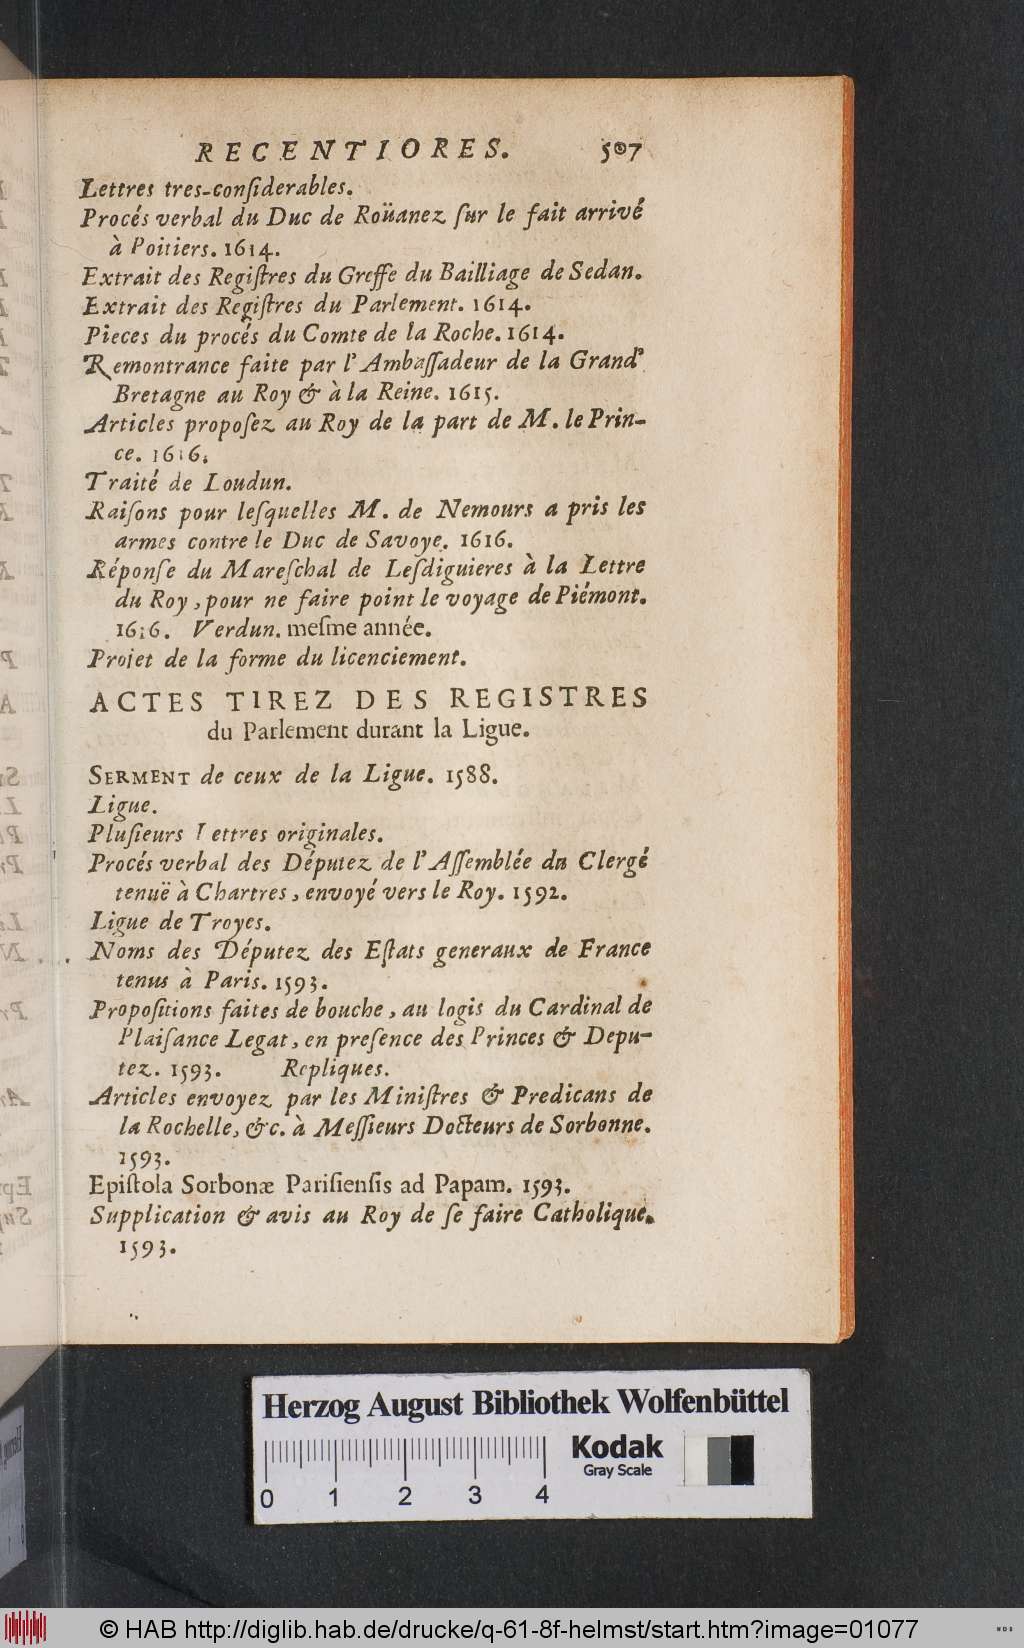 RECENTIORES. 507
Lettres tres-conſiderables.
Procés verbal du Duc de Roüanez ſur le fait arrivé
à Poitiers. 1614.
Extrait des Regiſtres du Greffe du Bailliage de Sedan.
Extrait des Regiſtres du Parlement. 1614.
Pieces du procés du Comte de la Roche. 1614.
Remontrance faite par l'Ambaſſadeur de la Grand'
Bretagne au Roy & à la Reine. 1615.
Articles propoſez au Roy de la part de M. le Prin-
ce. 1616.
Traité de Loudun.
Raiſons pour leſquelles M. de Nemours a pris les
armes contre le Duc de Savoye. 1616.
Réponſe du Mareſchal de Leſdiguieres à la Lettre
du Roy, pour ne faire point le voyage de Piémont.
1616. Verdun. meſme année.
Projet de la forme du licenciement.
ACTES TIREZ DES REGISTRES
du Parlement durant la Ligue.
SERMENT de ceux de la Ligue. 1588.
Ligue.
Pluſieurs Lettres originales.
Procés verbal des Députez de l'Aſſemblée du Clergé
tenuë à Chartres, envoyé vers le Roy. 1592.
Ligue de Troyes.
Noms des Députez des Eſtats generaux de France
tenus à Paris. 1593.
Propoſitions faites de bouche, au logis du Cardinal de
Plaiſance Legat, en preſence des Princes & Depu-
tez. 1593. Repliques.
Articles envoyez par les Miniſtres & Predicans de
la Rochelle, &c. à Meſſieurs Docteurs de Sorbonne.
1593.
Epiſtola Sorbonæ Pariſienſis ad Papam. 1593.
Supplication & avis au Roy de ſe faire Catholique.
1593.
Herzog August Bibliothek Wolfenbüttel
Kodak
Gray Scale
0 1 2 3 4
© HAB http://diglib.hab.de/drucke/q-61-8f-helmst/start.htm?image=01077